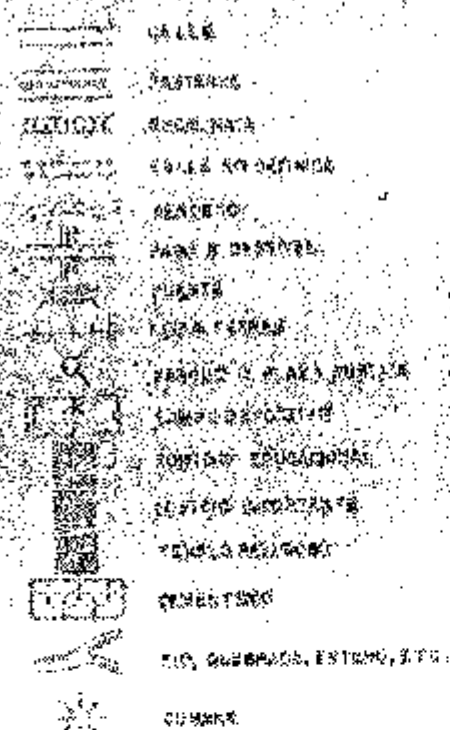 CALLE
PASTERRE
ESCALINATA
CALLE NO DEFINIDA
SENDERO
PASO A DESNIVEL
PUENTE
LINEA FERREA
PARQUE O PLAZA PUBLICA
CAMPO DEPORTIVO
EDIFICIO EDUCACIONAL
EDIFICIO IMPORTANTE
TEMPLO RELIGIOSO
CEMENTERIO
RIO, QUEBRADA, ESTERO, ETC.